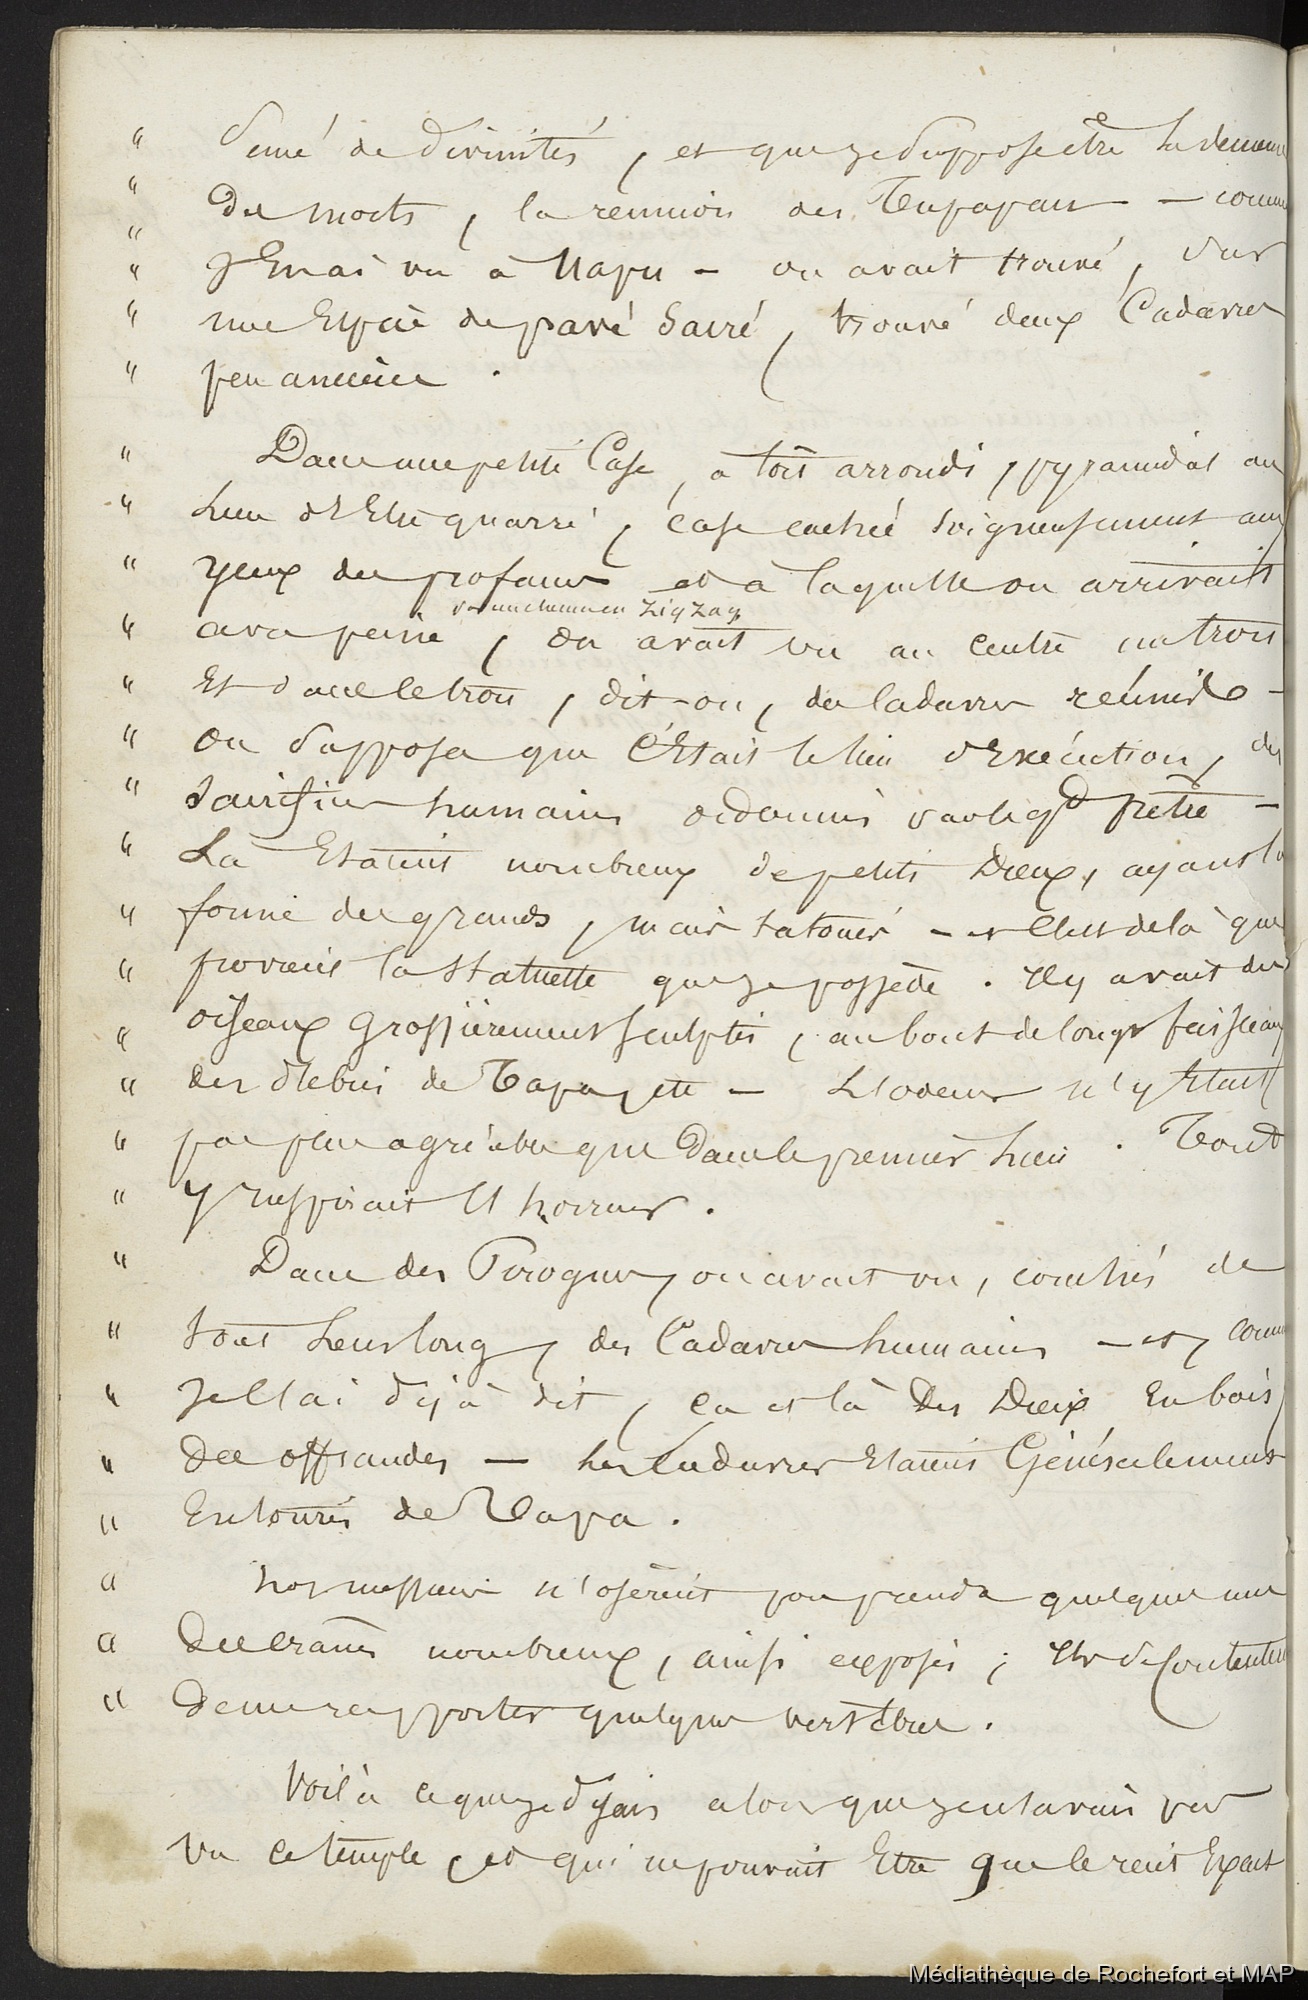 " semé de divinités, et que je suppose être la demeure
" des morts, la réunion des Tupapau — comme
" j'En ai vu à Napu — on avait trouvé, sur
" une Espèce de pavé Sacré, trouvé deux Cadavres
" peu anciens.
" Dans une petite Case, à toit arrondi, pyramidal au
" lieu d'Etre quarré, case cachée soigneusement aux
" yeux des profanes et à laquelle on arrivait
par un chemin en zig zag
" avec peine, on avait vu au centre un trou
" Et dans le trou, dit-on, des Cadavres réunis —
" On supposa que C'Etait le lieu d'Exécution, des
" sacrifices humains ordonnés par le gd prêtre —
" Là Etaient nombreux de petits Dieux, ayant la
" forme des grands, mais tatoués — et C'est de là que
" provient la statuette que je possède. Il y avait des
" oiseaux grossièrement sculptés, au bout de longs faisceaux
" des débris de Tapa, etc — L'odeur n'y Etait
" pas plus agréable que dans le premier lieu. Tout
" y respirait l'horreur.
" Dans des Pirogues, on avait vu, couchés de
" tout leur long, des Cadavres humains — et, comme
" je l'ai déjà dit, ça et là des Dieux En bois,
" des offrandes — les Cadavres Etaient Généralement
" Entourés de Tapa.
" Nos messieurs n'osèrent pas prendre quelques uns
" des crânes nombreux, ainsi exposés ; Ils se contentèrent
" de me rapporter quelques vertèbres.
Voilà ce que je disais alors que je n'avais pas
vu ce temple, et qui ne pouvait Etre que le récit Exact
Médiathèque de Rochefort et MAP